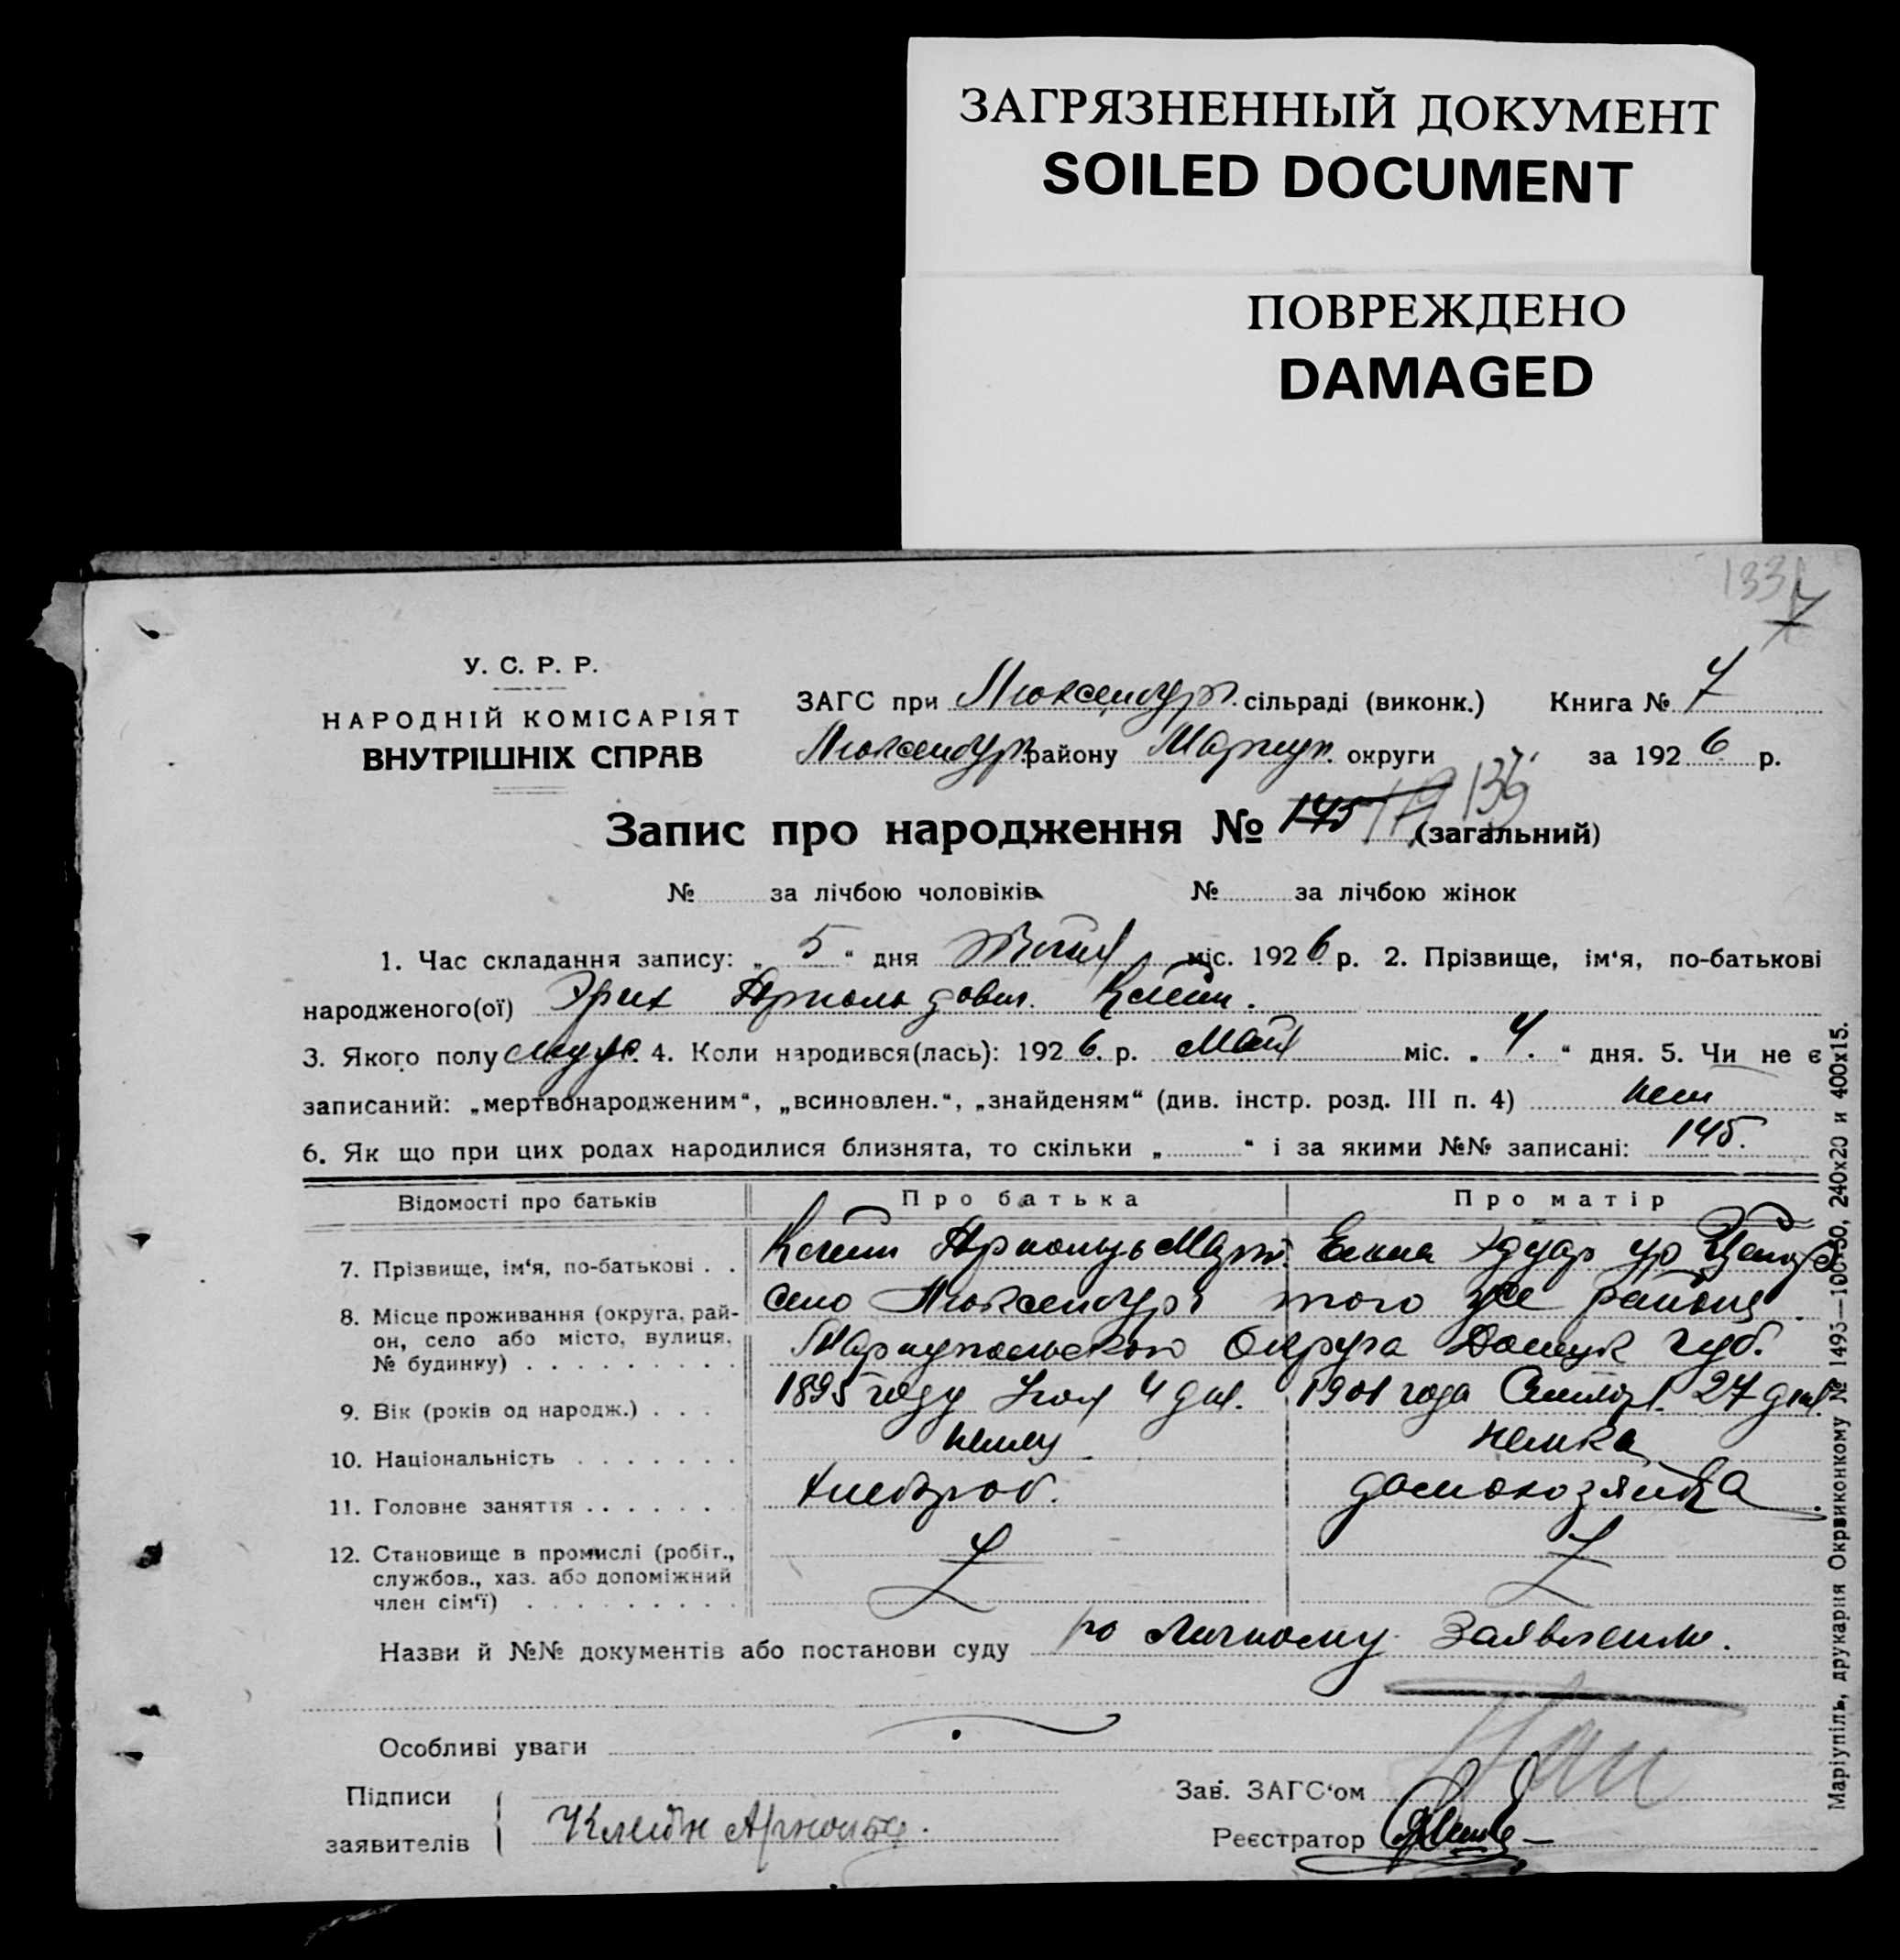 ЗАГРЯЗНЕННЫЙ ДОКУМЕНТ
SOILED DOCUMENT
ПОВРЕЖДЕНО
DAMAGED
133
7
У. С. Р. Р.
НАРОДНІЙ КОМІСАРІЯТ
ВНУТРІШНІХ СПРАВ
ЗАГС при Люксембург. сільраді (виконк.) Книга № 7
Люксембург. району Мариуп. округи за 1926 р.
Запис про народження № 145 135 (загальний)
№ за лічбою чоловіків № за лічбою жінок
1. Час складання запису: „ 5 “ дня міс. 1926 р. 2. Прізвище, ім‘я, по-батькові
народженого(ої) Эрих Арнольдович. Клейн.
3. Якого полу муж. 4. Коли народився(лась): 1926. р. Мая міс. „ 4. “ дня. 5. Чи не є
записаний: „мертвонародженим“, „всиновлен.“, „знайденям“ (див. інстр. розд. III п. 4) нет
6. Як що при цих родах народилися близнята, то скільки „ “ і за якими №№ записані: 145.
Відомості про батьків Про батька Про матір
7. Прізвище, ім‘я, по-батькові . . Клейн Арнольд Март. Эдуар ур
8. Місце проживання (округа, рай- село Люксембург того же района
он, село або місто, вулиця, Мариупольского Округа Донецк губ.
№ будинку) . . . . . . . . .
9. Вік (років од народж.) . . . 1895 году 4 дня. 1901 года 27 дня.
10. Національність . . . . . . . немец немка
11. Головне заняття . . . . . . хлебороб. домохозяйка
12. Становище в промислі (робіт.,
службов., хаз. або допоміжний
член сім‘ї) . . . . . . . . .
Назви й №№ документів або постанови суду по личному заявлению.
Особливі уваги
Підписи Зав. ЗАГС‘ом
заявителів Клейн Арнольд. Реєстратор
Маріупіль, друкарня Окрвиконкому № 1495—100х50, 240х20 и 400х15.